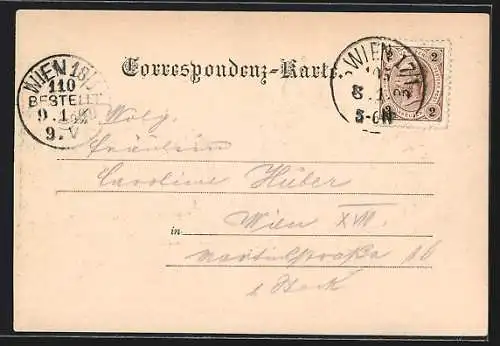 WIEN 18/1
110
BESTELLT
9. V
Correspondenz-Karte.
WIEN 17/1
3-6N
2 2
2 2
Wolg.
Fräulein
Caroline Huber
Wien XVIII.
in
Martinstraße 16